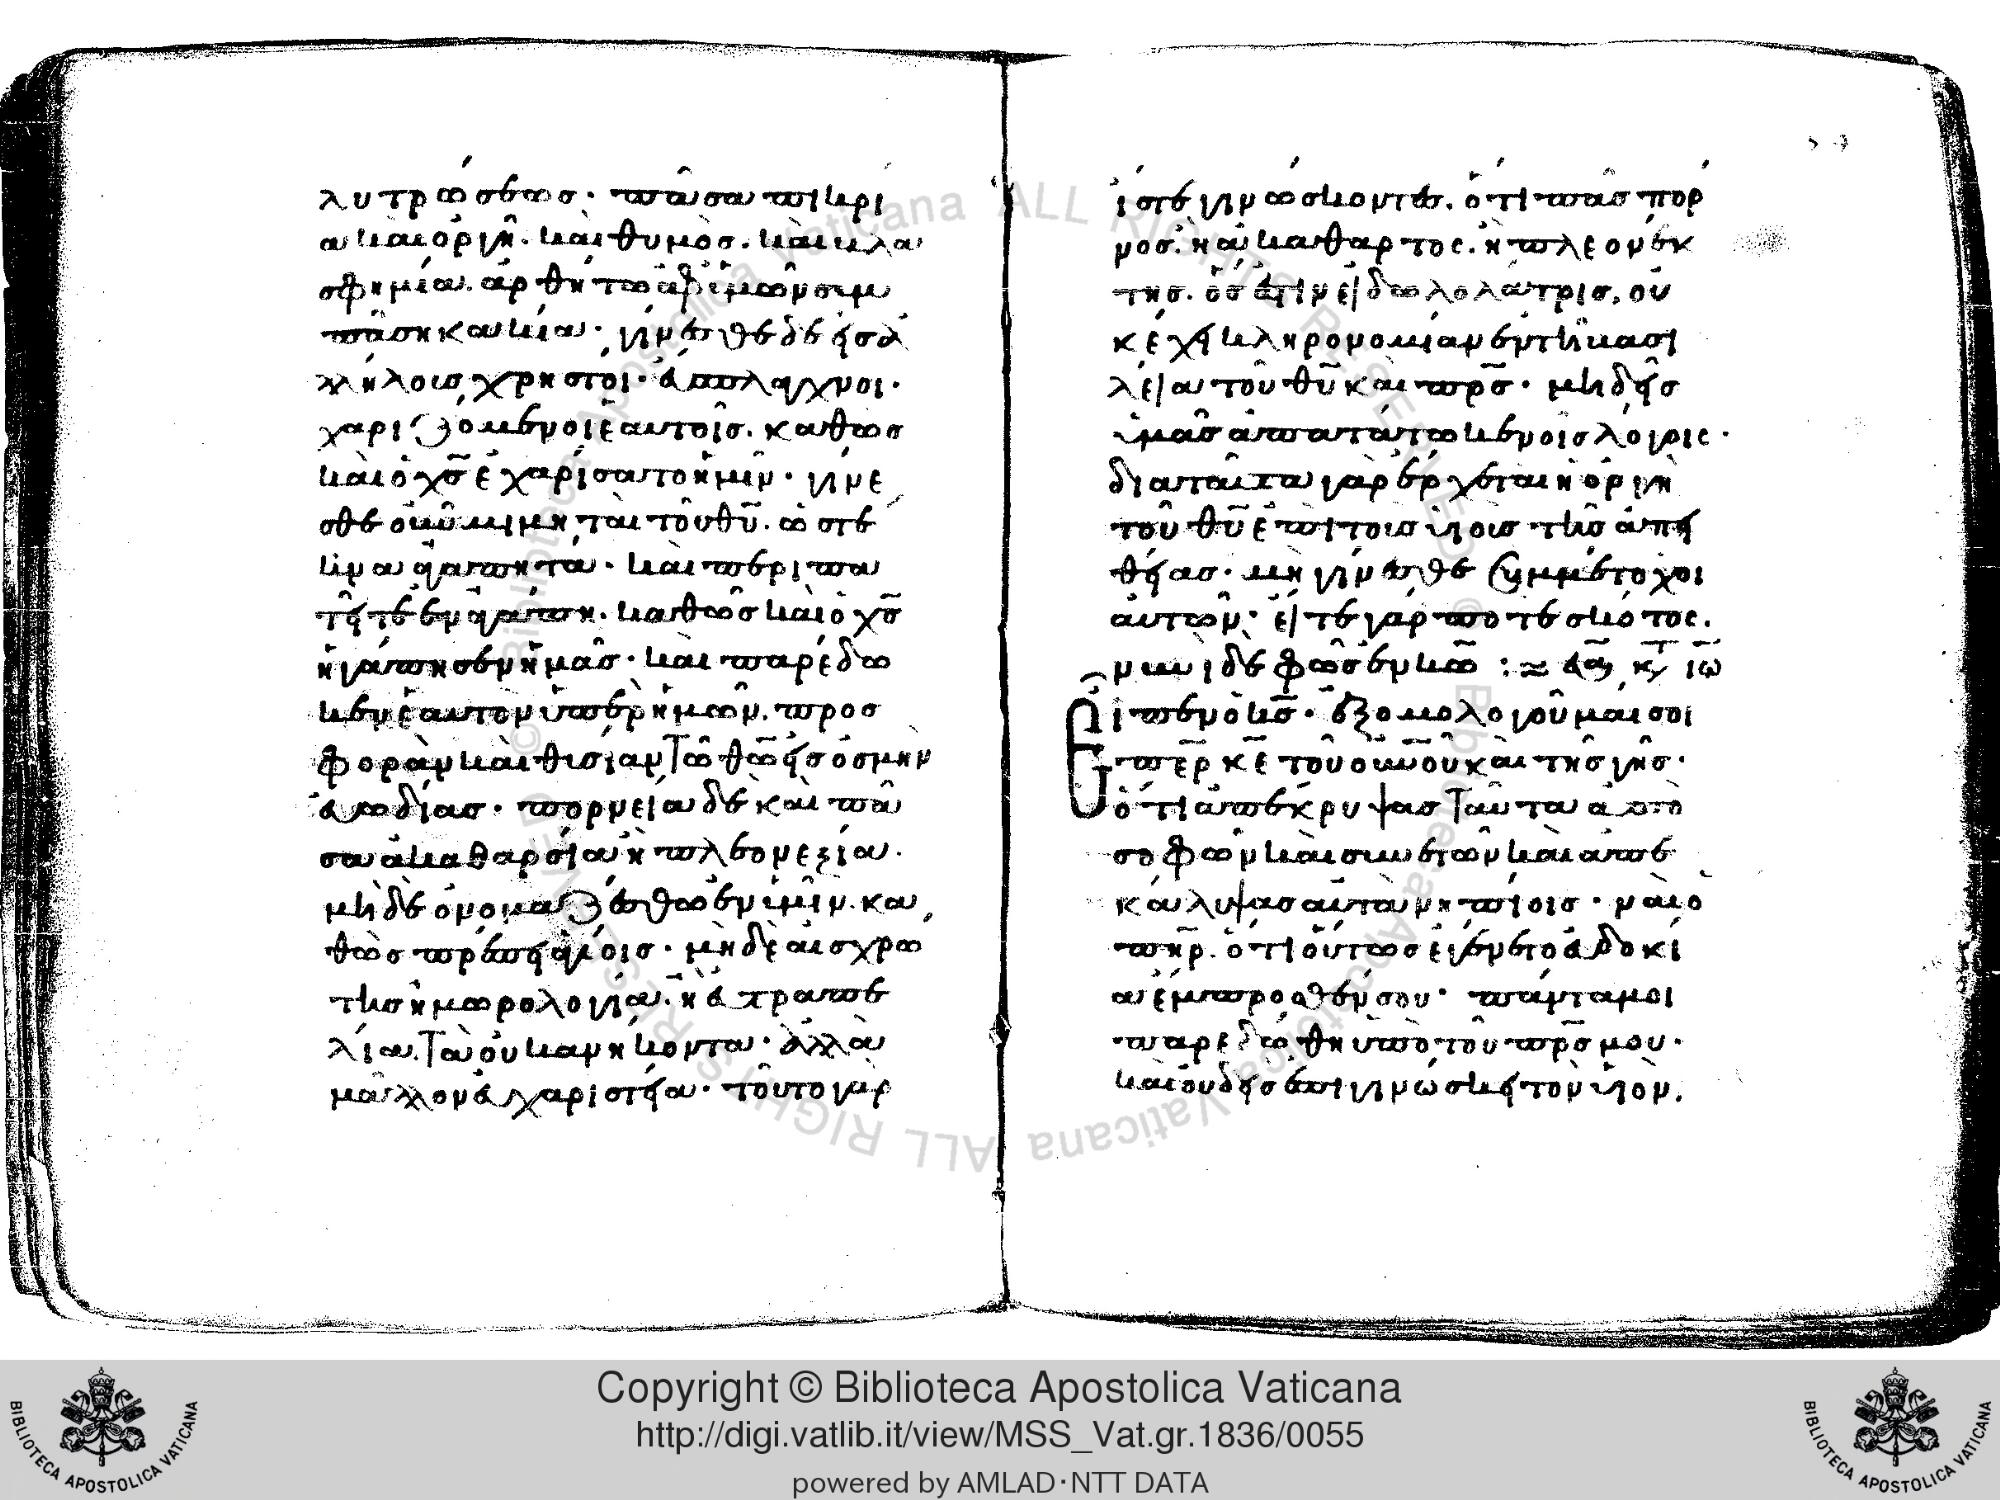 λυτρώσεως· πᾶσα πικρί
α καὶ ὀργὴ· καὶ θυμὸς· καὶ βλα
σφημία. ἀρθήτω ἀφ' ἡμῶν σὺμ
πάση κακία· γίνεσθε δὲ εἰς ἀλ
λήλοις χρηστοί· εὔσπλαγχνοι·
χαριζόμενοι ἑαυτοῖς. καθὼς
καὶ ὁ χσ ἐχαρίσατο ἡμῖν· γίνε
σθε οὖν μιμηται τοῦ θυ. ὡς τε
κνα ἀγαπητά· καὶ περιπα
τεῖτε ἐν ἀγάπη. καθὼς καὶ ὁ χσ
ἠγάπησεν ἡμᾶς· καὶ παρέδω
κεν ἑαυτὸν ὑπὲρ ἡμῶν. προσ
φορὰν καὶ θισίαν τῶ θω εἰς ὀσμὴν
εὐωδίας· πορνεία δὲ καὶ πᾶ
σα ἀκαθαρσία ἢ πλεονεξία.
μὴδὲ ὀνομαζέσθω ἐν ἡμῖν. κα
θὼς πρέπει ἁγίοις· μὴδὲ αἰσχρω
της ἢ μωρολογία. ἢ εὐτραπε
λία. τὰ οὐκ ἀνήκοντα· ἀλλὰ
μᾶλλον εὐχαριστεία· τοῦτο γὰρ
ἴστε γινώσκοντες. ὅτι πᾶς πόρ
νος. ἢ ἀκάθαρτος. ἢ πλεονέκ
της. ὅς ἐστιν εἰδωλολάτρις, οὐ
κ ἔχει κληρονομίαν ἐν τῆ βασι
λεία τοῦ θυ καὶ πρσ· μὴδεὶς
ὑμᾶς ἀπατάτω κενοῖς λόγοις·
διὰ ταῦτα γὰρ ἔρχεται ἡ ὀργὴ
τοῦ θυ ἐπὶ τοὶς ὑιοὶς τῆς ἀπει
θείας· μὴ γίνεσθε συμμέτοχοι
αὐτῶν· εἶτε γάρ ποτε σκότος.
νυνὶ δὲ φῶς ἐν κω :~ ευα κτ ιω
Εἶπεν ὁ ισ· ἐξομολογοῦμαι σοι
περ κε τοῦ οὐνοῦ καὶ τῆς γῆς·
ὅτι ἀπέκρυψας ταῦτα ἀπὸ
σοφῶν καὶ συνετῶν καὶ ἀπε
κάλυψας αὐτὰ νηπίοις· ναὶ ὁ
πηρ. ὅτι οὕτως ἐγένετο εὐδοκί
α ἔμπροσθέν σου· πάντα μοι
παρεδώθη ὑπὸ τοῦ πρσ μου·
καὶ οὐδεὶς ἐπιγινώσκει τὸν ὑιὸν.
Copyright © Biblioteca Apostolica Vaticana
http://digi.vatlib.it/view/MSS_Vat.gr.1836/0055
powered by AMLAD·NTT DATA